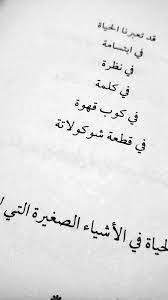 قد تعبرنا الحياة
في ابتسامة
في نظرة
في كلمة
في كوب قهوة
في قطعة شوكولاتة
الحياة في الأشياء الصغيرة التي
*